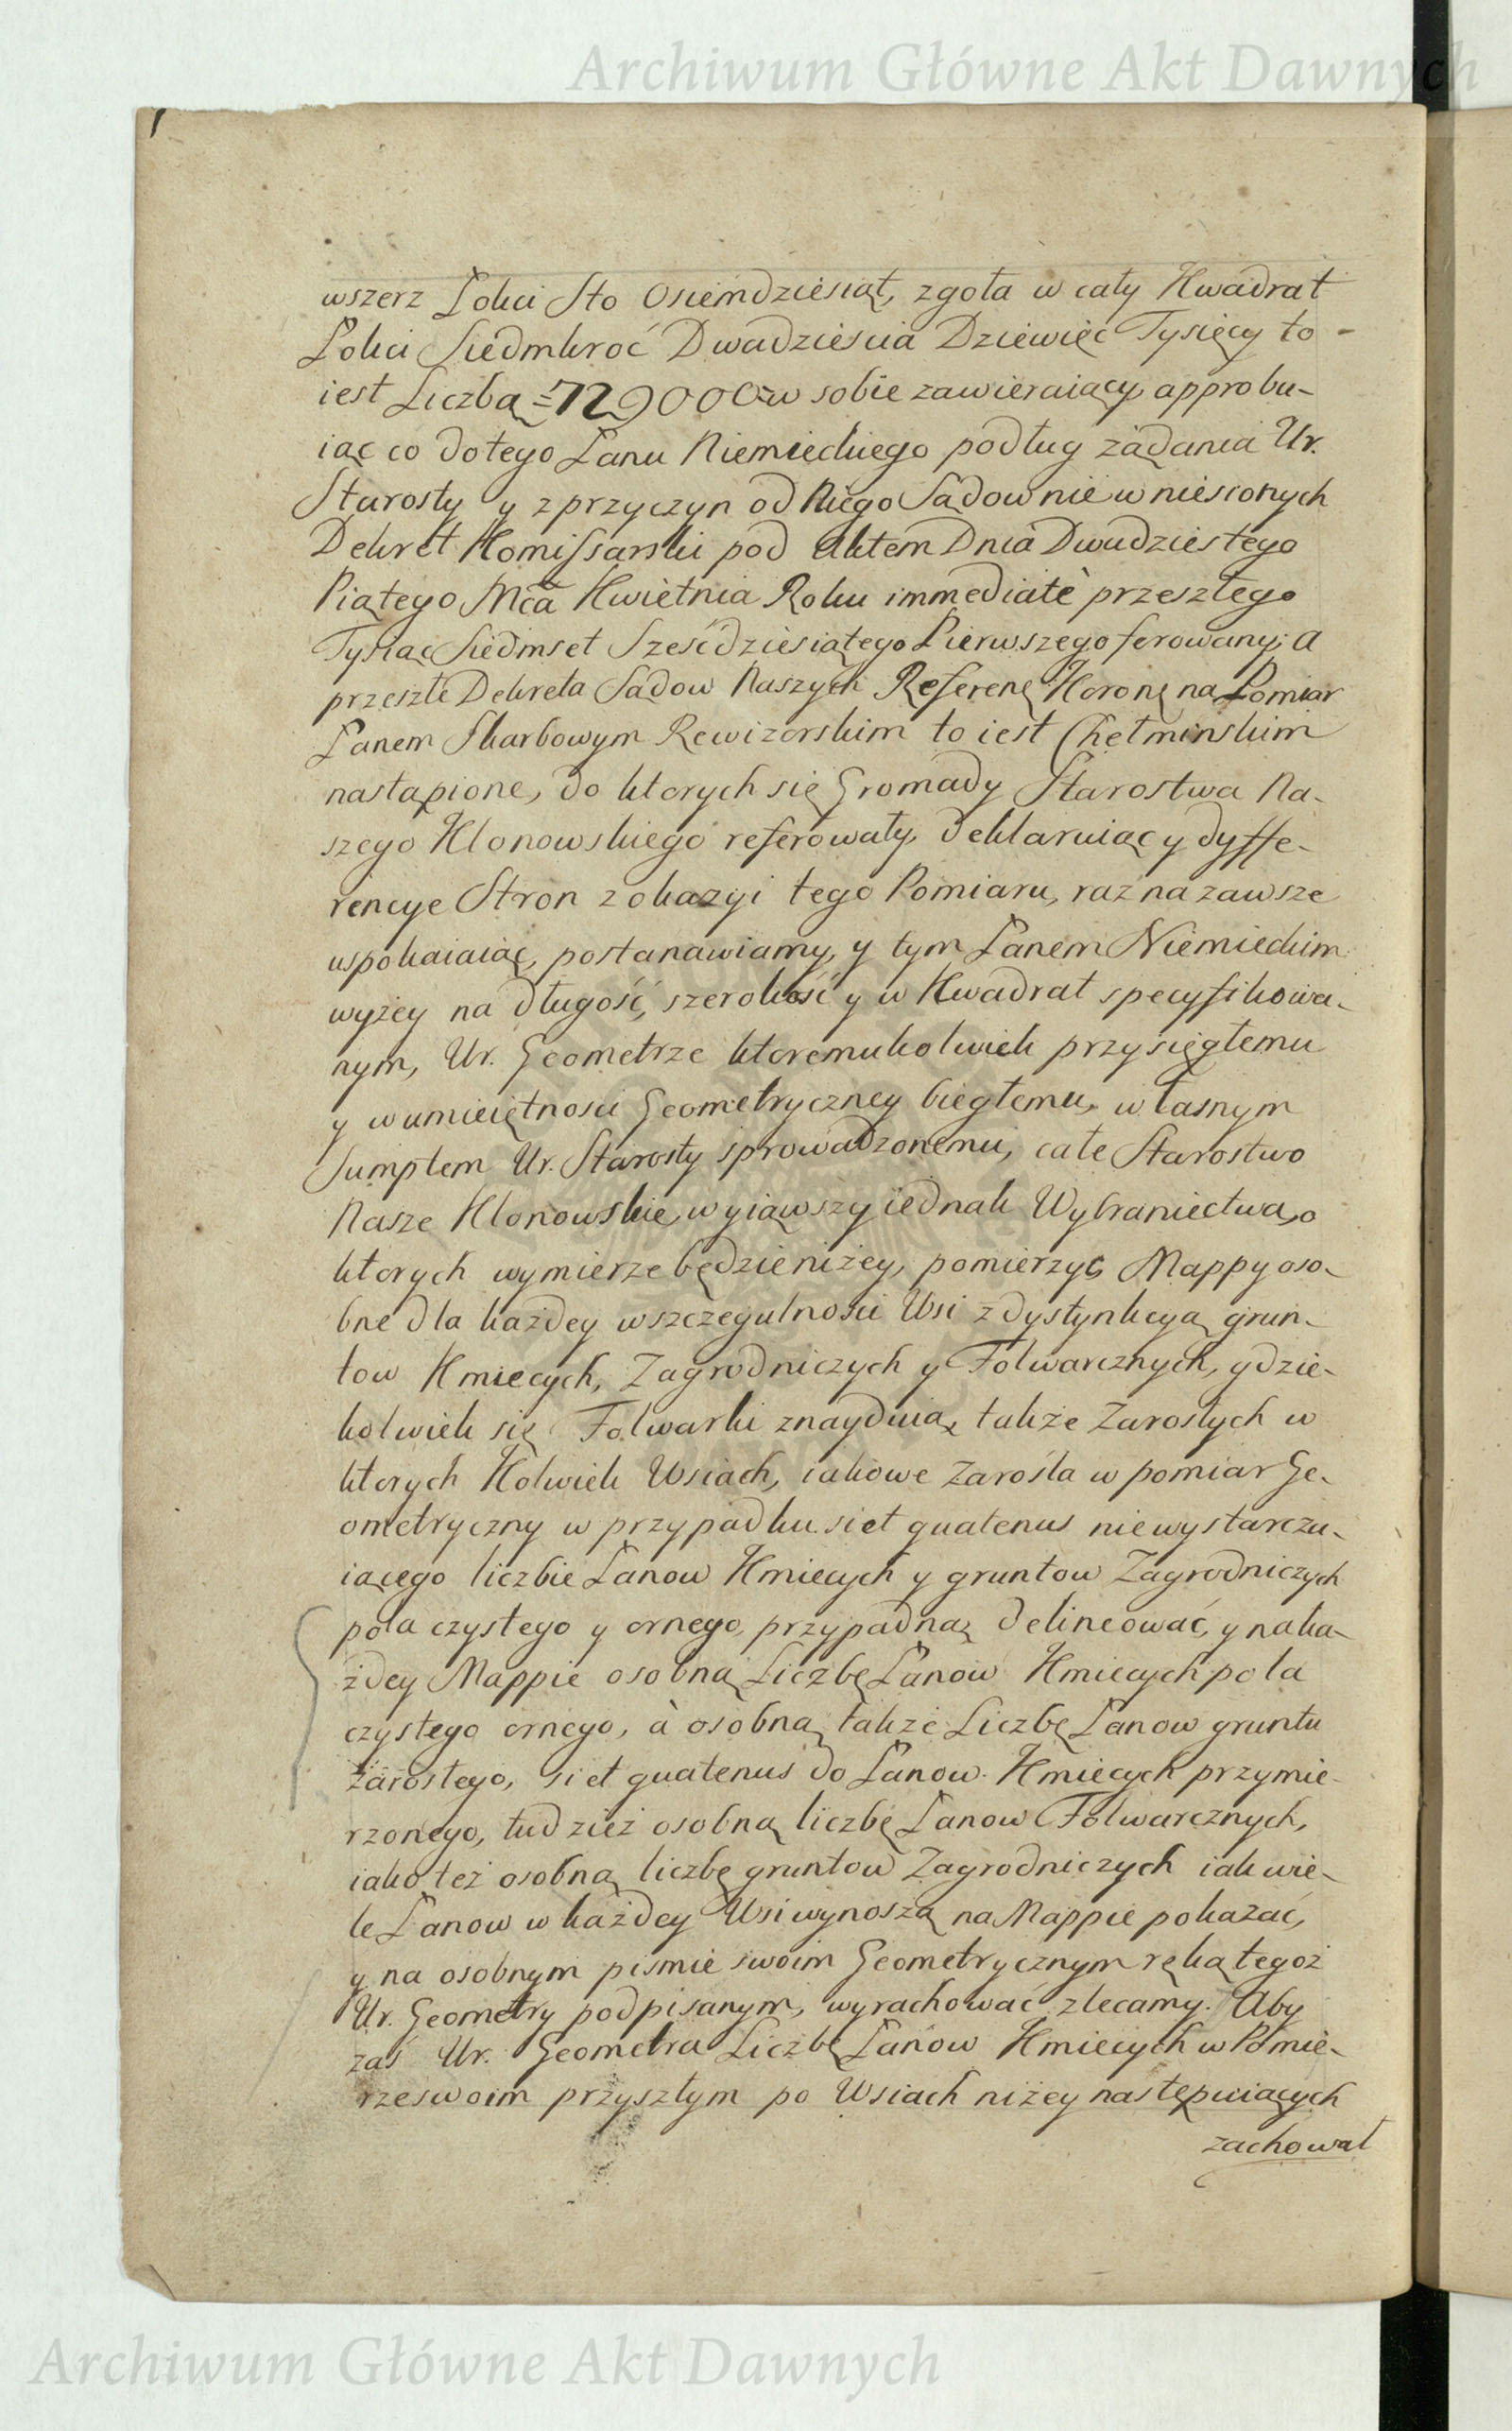 Archiwum Główne Akt Dawnych
wszerz Łokci Sto Osiemdziesiąt, zgoła w cały Kwadrat
Łokci Siedmkroć Dwadzieścia Dziewięć Tysięcy to -
iest Liczbą =729000= w sobie zawieraiący, approbu-
iąc co do tego Łanu Niemieckiego podług żądania Ur.
Starosty y z przyczyn od Niego Sądownie wniesionych
Dekret Komissarski pod Aktem Dnia Dwudziestego
Piątego Mca Kwietnia Roku immediatè przeszłego
Tysiąc Siedmset Sześćdziesiątego Pierwszego ferowany; a
przeszłe Dekreta Sądow Naszych Referenẹ Koronẹ na Pomiar
Łanem Skarbowym Rewizorskim to iest Chełminskim
nastąpione, do ktorych się Gromady Starostwa Na-
szego Klonowskiego referowały, deklaruiąc y dyffe-
rencye Stron z okazyi tego Pomiaru, raz na zawsze
uspokaiaiąc, postanawiamy, y tym Łanem Niemieckim
wyżey na długość, szerokość y w Kwadrat specyfikowa-
nym, Ur. Geometrze ktoremukolwiek przysięgłemu
y w umieiętności Geometryczney biegłemu, własnym
Sumptem Ur. Starosty sprowadzonemu, całe Starostwo
Nasze Klonowskie, wyiąwszy iednak Wybraniectwa, o
ktorych wymierze będzie niżey, pomierzyć, Mappy oso-
bne dla każdey wszczegulności Wsi z dystynkcyą grun-
tow Kmiecych, Zagrodniczych y Folwarcznych, gdzie-
kolwiek się Folwarki znayduią, także Zarosłych w
ktorych Kolwiek Wsiach, iakowe Zarośla w pomiar Ge-
ometryczny w przypadku si et quatenus niewystarcza-
iącego liczbie Łanow Kmiecych y gruntow Zagrodniczych
pola czystego y ornego, przypadną, delineować, y na ka-
żdey Mappie osobną Liczbę Łanow Kmiecych pola
czystego ornego, à osobną także Liczbę Łanow gruntu
zarosłego, si et quatenus do Łanow Kmiecych przymie-
rzonego, tudzież osobną liczbę Łanow Folwarcznych,
iako też osobną liczbę gruntow Zagrodniczych iak wie-
le Łanow w każdey Wsi wynoszą na Mappie pokazać,
y na osobnym pismie swoim Geometrycznym ręką tegoż
Ur. Geometry podpisanym, wyrachować zlecamy. Aby
zaś Ur. Geometra Liczbę Łanow Kmiecych w Pomie-
rze swoim przyszłym po Wsiach niżey następuiących
zachował
Archiwum Główne Akt Dawnych